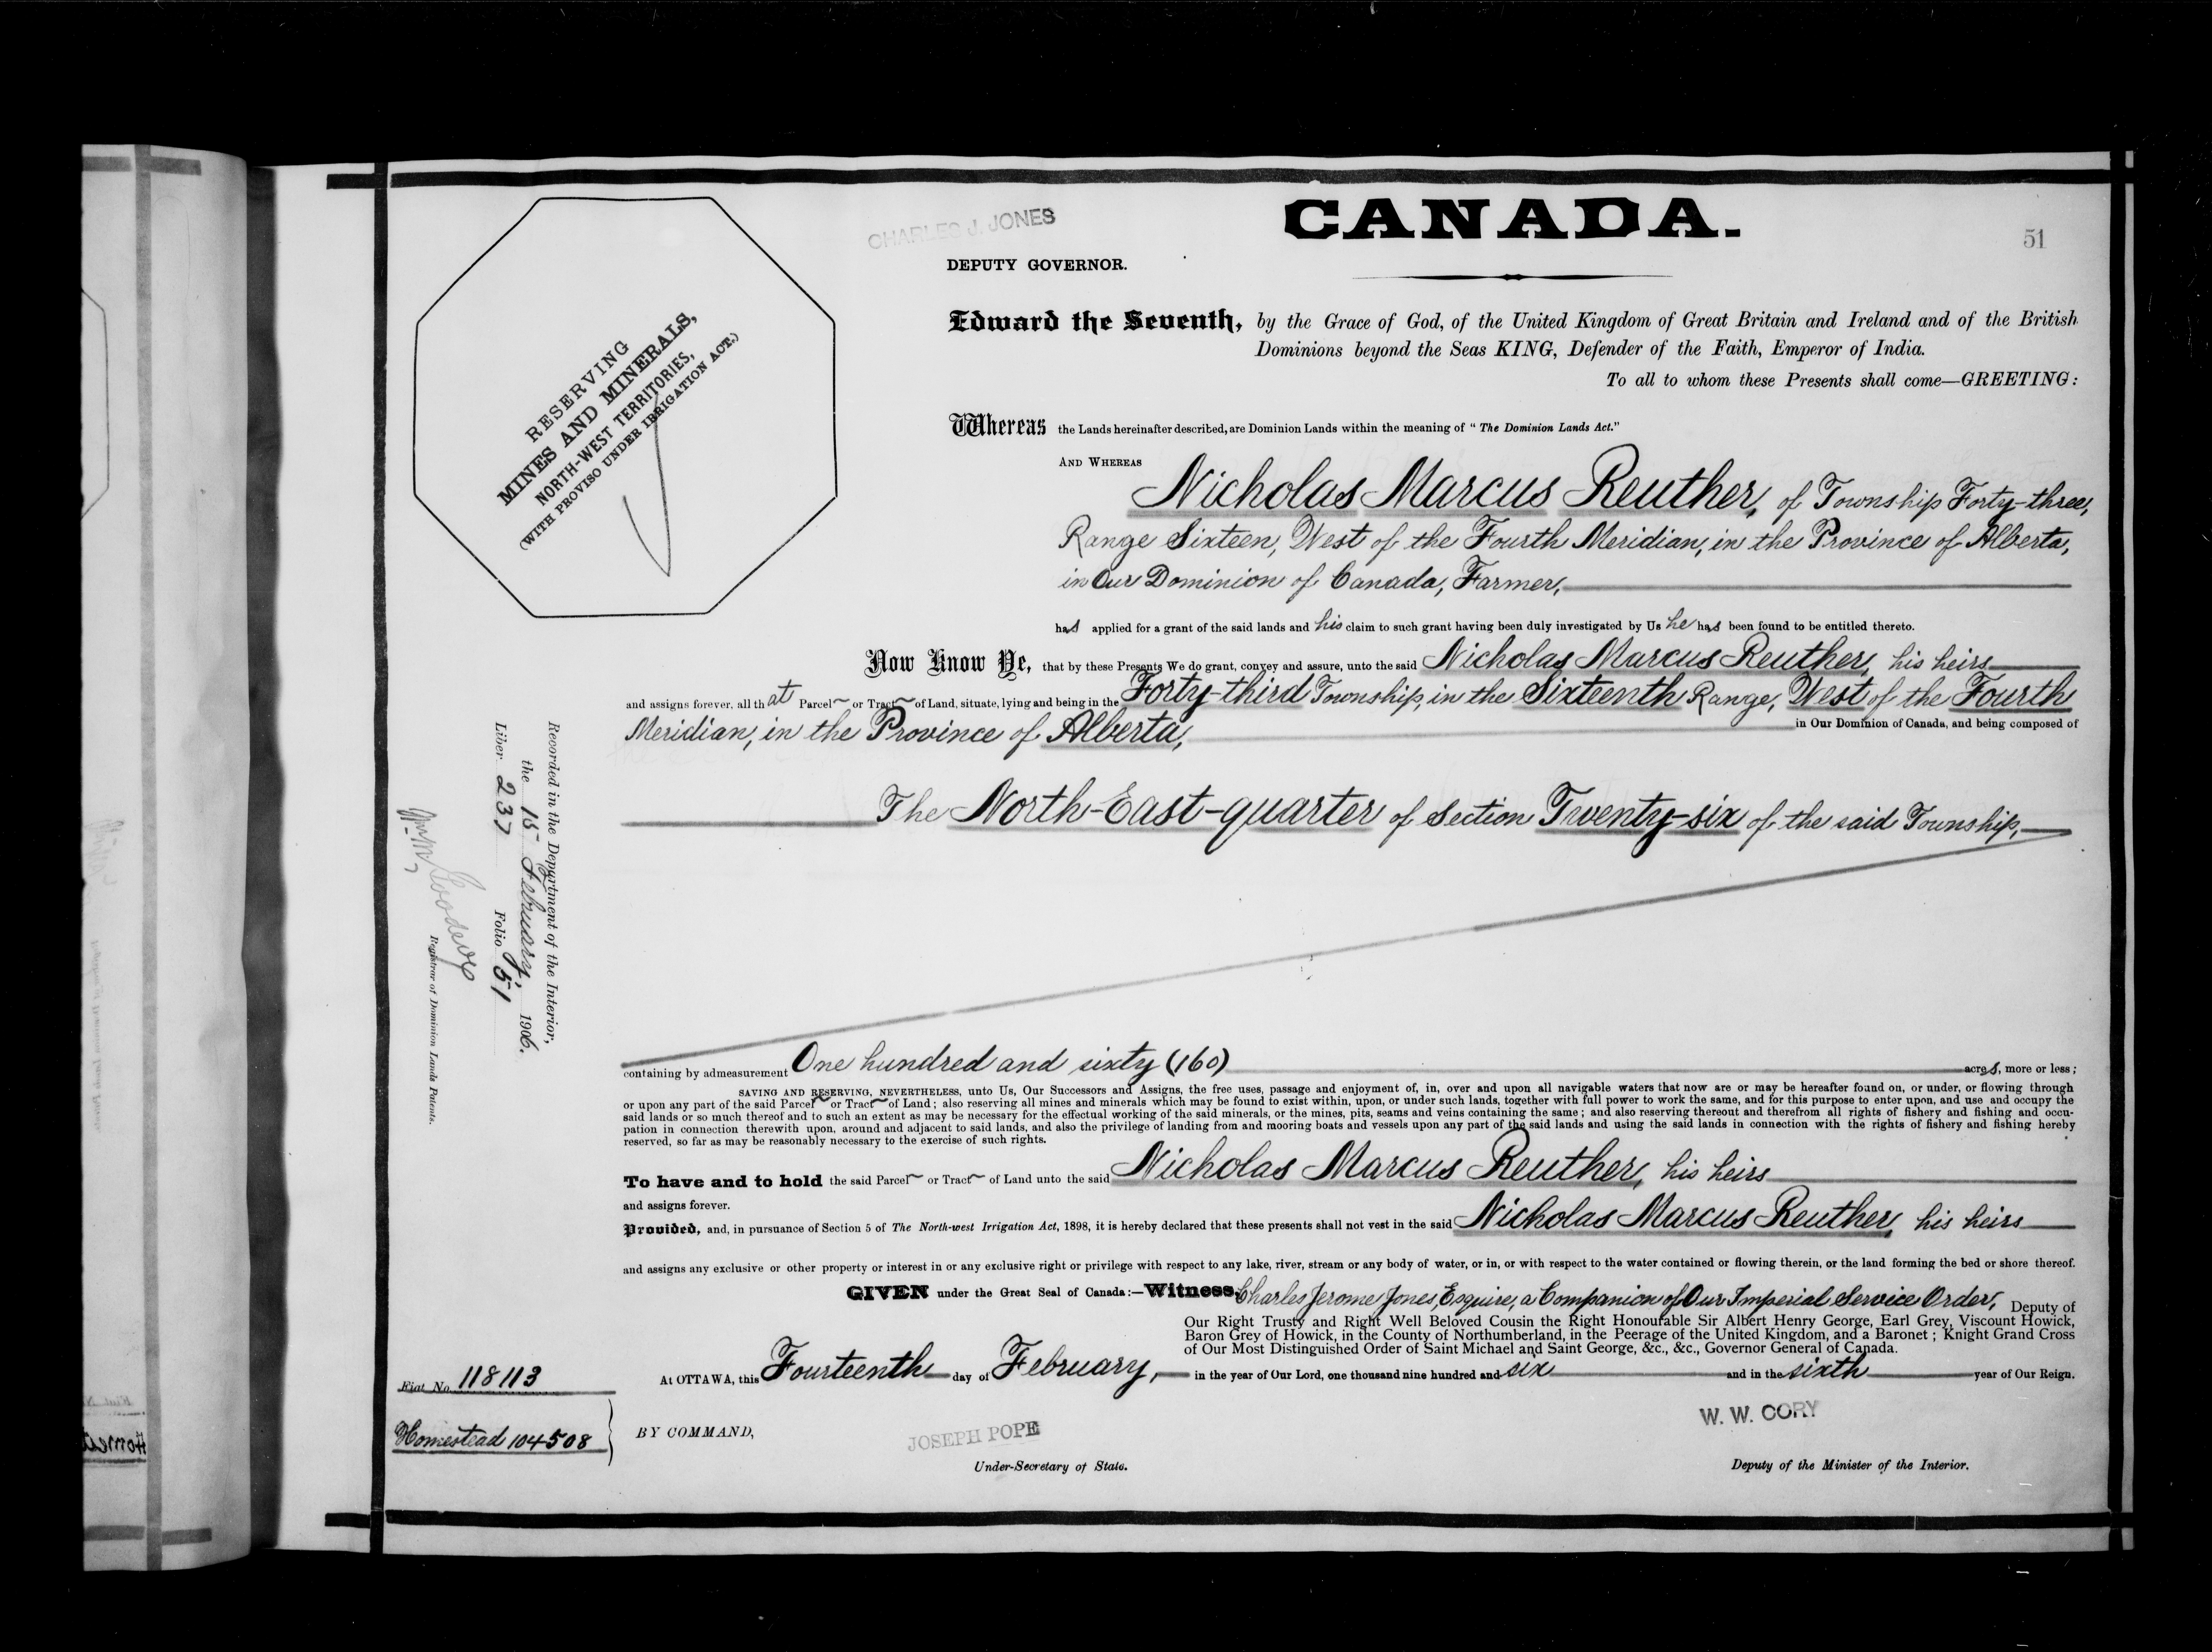 CANADA.
51
CHARLES J. JONES
DEPUTY GOVERNOR.
RESERVING
MINES AND MINERALS,
NORTH-WEST TERRITORIES,
(WITH PROVISO UNDER IRRIGATION ACT.)
Edward the Seventh, by the Grace of God, of the United Kingdom of Great Britain and Ireland and of the British
Dominions beyond the Seas KING, Defender of the Faith, Emperor of India.
To all to whom these Presents shall come—GREETING:
Whereas the Lands hereinafter described, are Dominion Lands within the meaning of "The Dominion Lands Act."
AND WHEREAS
Nicholas Marcus Reuther, of Township Forty-three,
Range Sixteen, West of the Fourth Meridian, in the Province of Alberta,
in Our Dominion of Canada, Farmer,
has applied for a grant of the said lands and his claim to such grant having been duly investigated by Us he has been found to be entitled thereto.
Now Know Ye, that by these Presents We do grant, convey and assure, unto the said Nicholas Marcus Reuther, his heirs
and assigns forever, all that Parcel or Tract of Land, situate, lying and being in the Forty-third Township, in the Sixteenth Range, West of the Fourth
Meridian, in the Province of Alberta, in Our Dominion of Canada, and being composed of
The North-East-quarter of Section Twenty-six of the said Township,
containing by admeasurement One hundred and sixty (160) acres, more or less;
SAVING AND RESERVING, NEVERTHELESS, unto Us, Our Successors and Assigns, the free uses, passage and enjoyment of, in, over and upon all navigable waters that now are or may be hereafter found on, or under, or flowing through
or upon any part of the said Parcel or Tract of Land; also reserving all mines and minerals which may be found to exist within, upon, or under such lands, together with full power to work the same, and for this purpose to enter upon, and use and occupy the
said lands or so much thereof and to such an extent as may be necessary for the effectual working of the said minerals, or the mines, pits, seams and veins containing the same; and also reserving thereout and therefrom all rights of fishery and fishing and occu-
pation in connection therewith upon, around and adjacent to said lands, and also the privilege of landing from and mooring boats and vessels upon any part of the said lands and using the said lands in connection with the rights of fishery and fishing hereby
reserved, so far as may be reasonably necessary to the exercise of such rights.
To have and to hold the said Parcel or Tract of Land unto the said Nicholas Marcus Reuther, his heirs
and assigns forever.
Provided, and, in pursuance of Section 5 of The North-west Irrigation Act, 1898, it is hereby declared that these presents shall not vest in the said Nicholas Marcus Reuther, his heirs
and assigns any exclusive or other property or interest in or any exclusive right or privilege with respect to any lake, river, stream or any body of water, or in, or with respect to the water contained or flowing therein, or the land forming the bed or shore thereof.
GIVEN under the Great Seal of Canada:—Witness, Charles Jerome Jones, Esquire, a Companion of Our Imperial Service Order, Deputy of
Our Right Trusty and Right Well Beloved Cousin the Right Honourable Sir Albert Henry George, Earl Grey, Viscount Howick,
Baron Grey of Howick, in the County of Northumberland, in the Peerage of the United Kingdom, and a Baronet; Knight Grand Cross
of Our Most Distinguished Order of Saint Michael and Saint George, &c., &c., Governor General of Canada.
At OTTAWA, this Fourteenth day of February, in the year of Our Lord, one thousand nine hundred and six and in the sixth year of Our Reign.
BY COMMAND,
JOSEPH POPE
Under-Secretary of State.
W. W. CORY
Deputy of the Minister of the Interior.
Recorded in the Department of the Interior,
the 15 February, 1906.
Liber 237 Folio 51
Wm Goodeve
Registrar of Dominion Lands Patents.
Fiat No. 118113
Homestead 104508